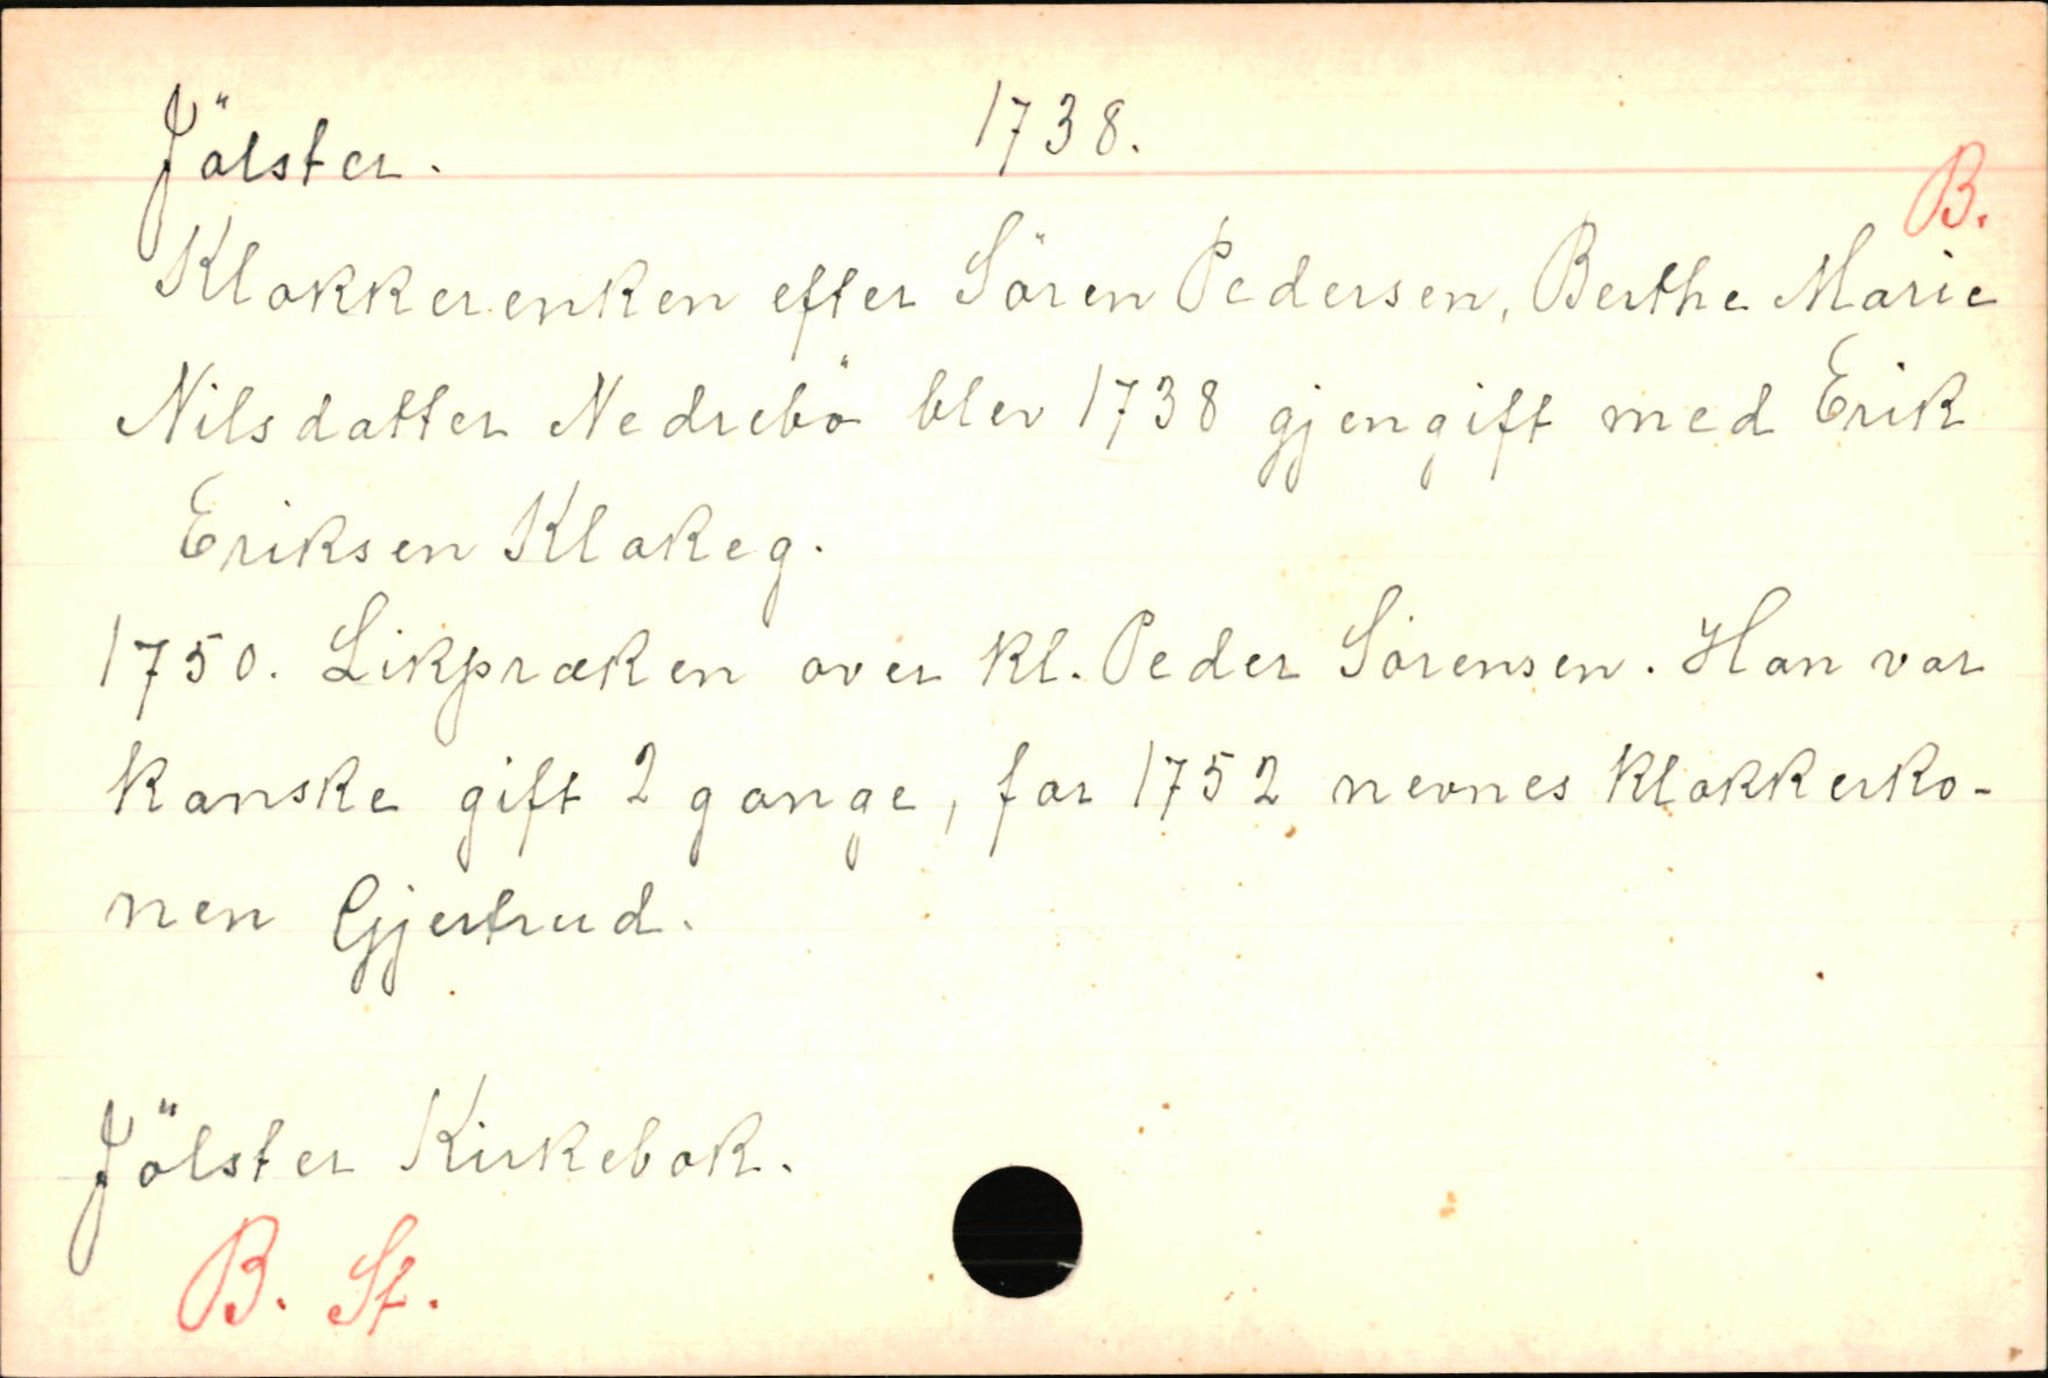 Jölster. 1738.
B.
Klokkerenken efter Sören Pedersen, Berthe Marie
Nilsdatter Nedrebö blev 1738 gjengift med Erik
Eriksen Klakeg.
1750. Likpræken over kl. Peder Sörensen. Han var
kanske gift 2 gange, for 1752 nevnes klokkerko-
nen Gjertrud.
Jölster Kirkebok.
B. St.